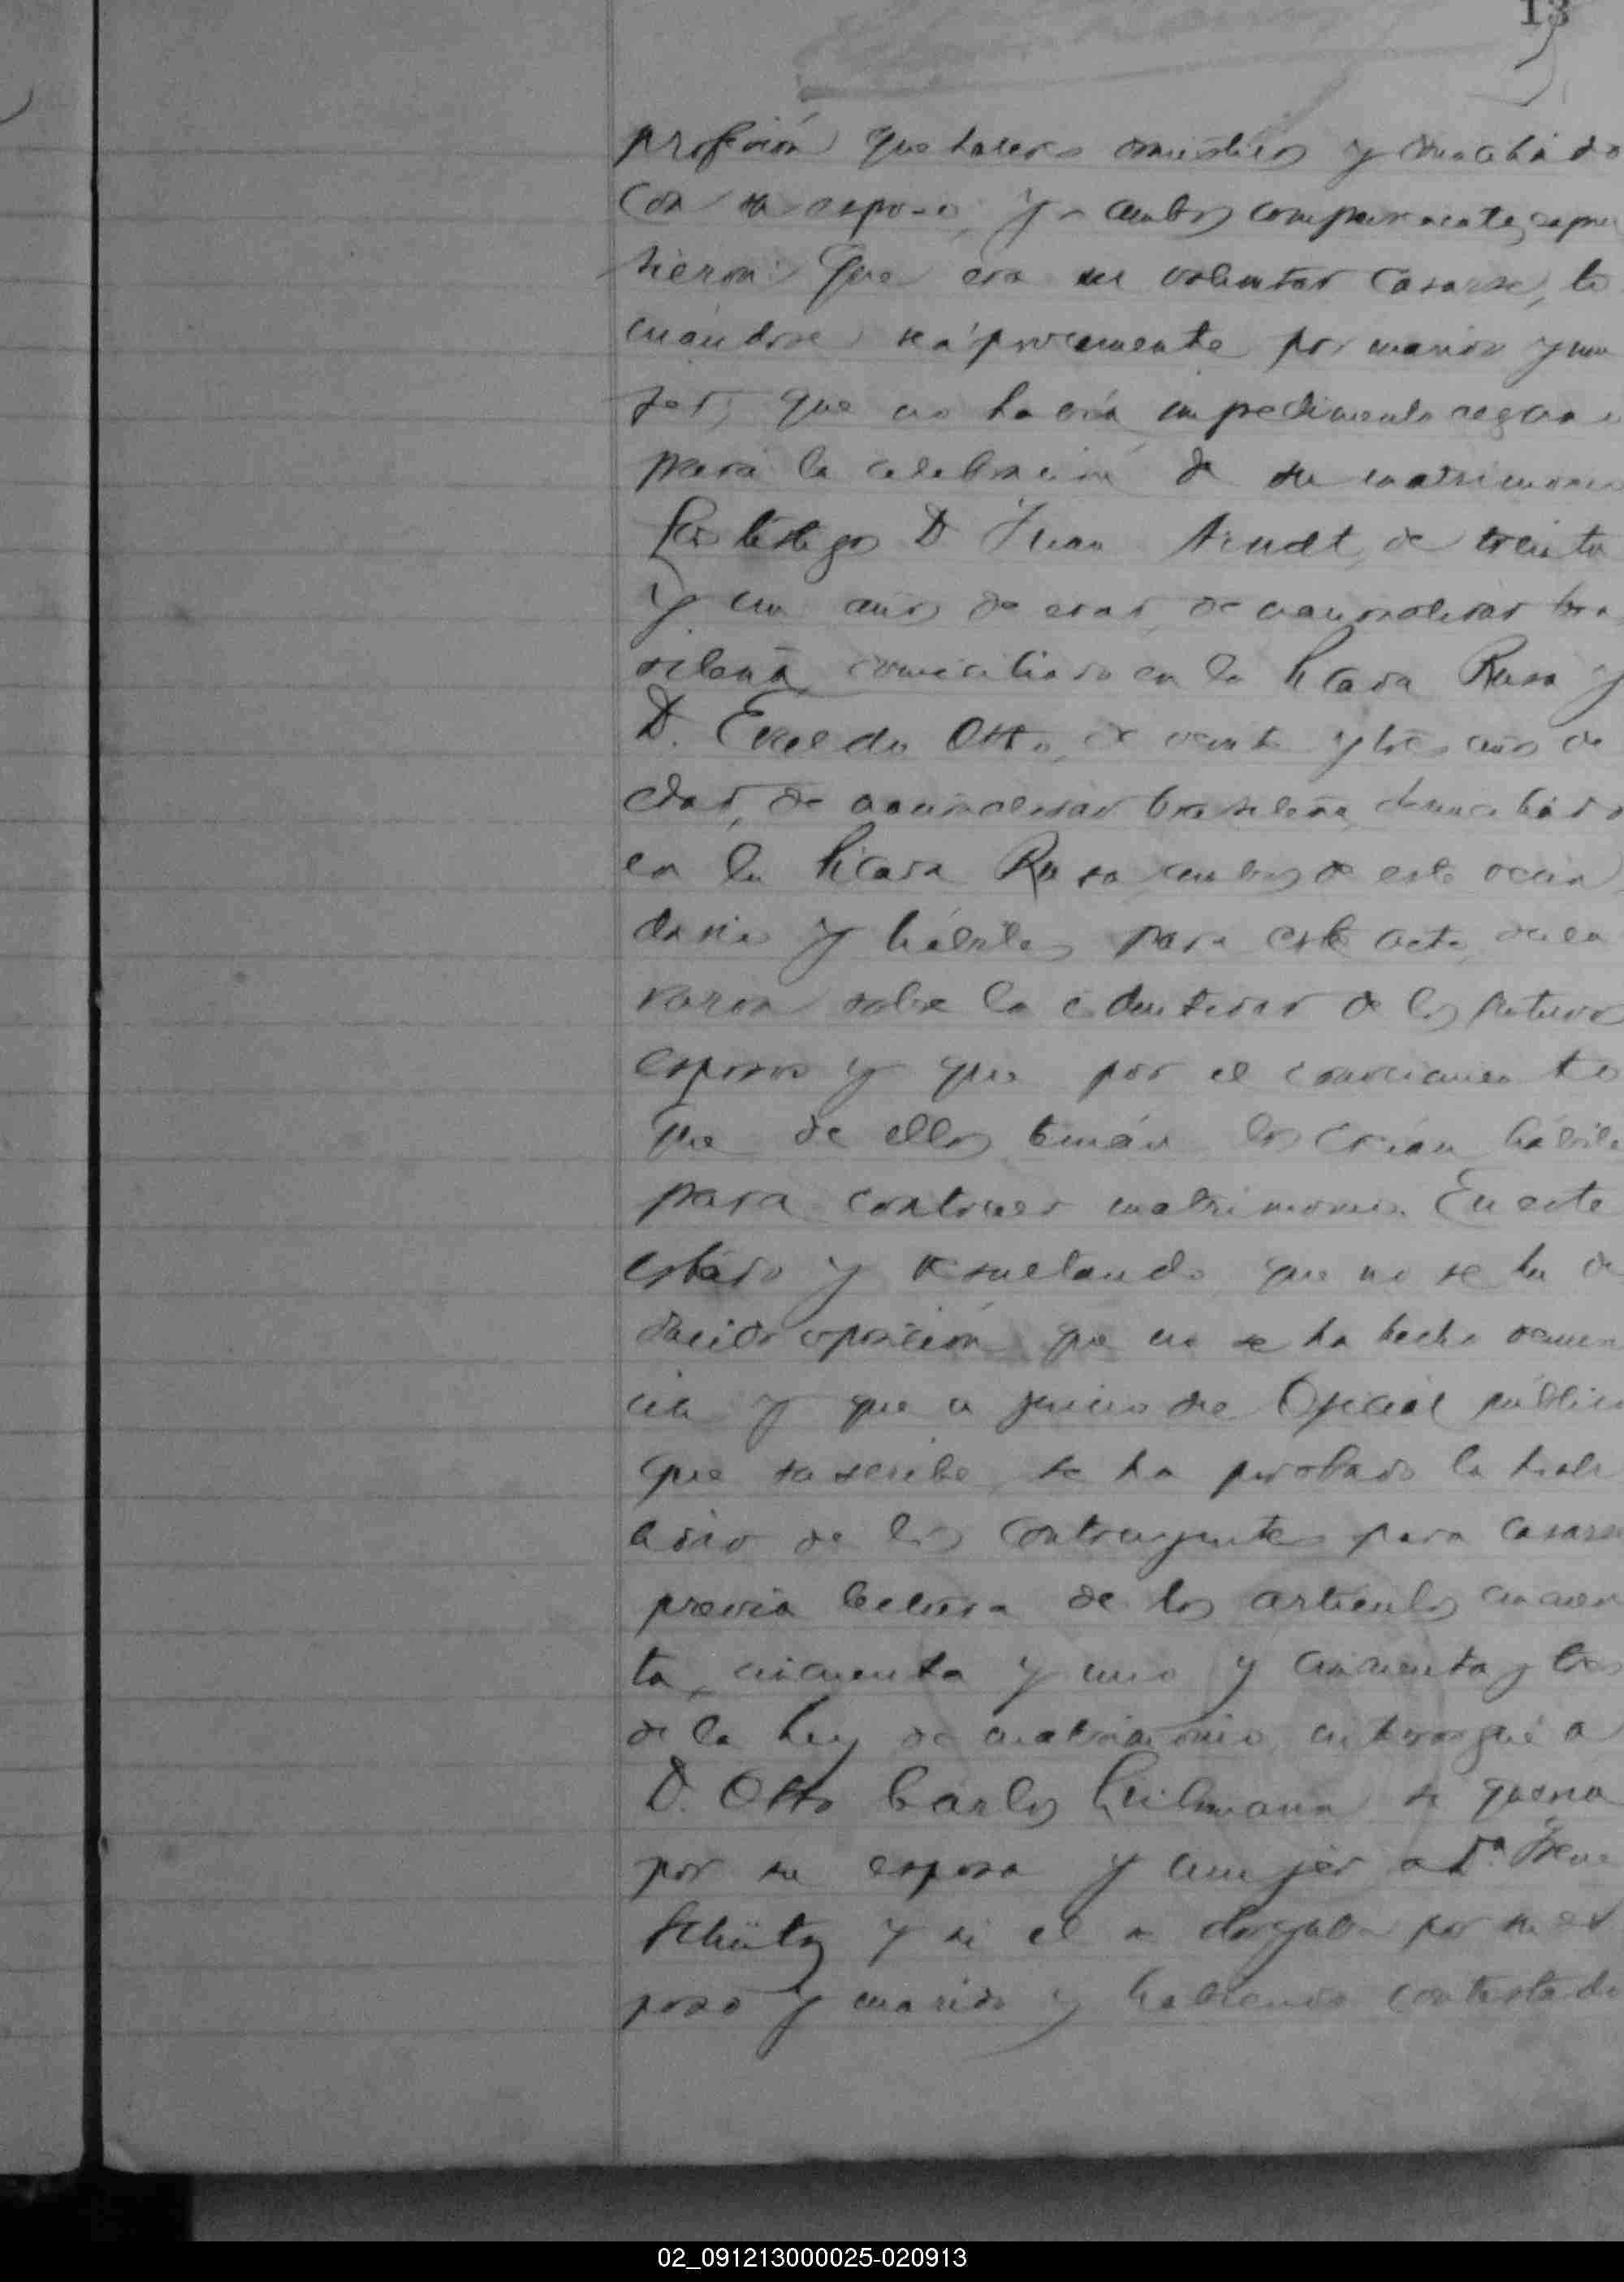 13
profesión quehaceres domésticos y domiciliado
con su esposo, y ambos comparecientes expu
sieron: Que era su voluntad casarse, to
mándose recíprocamente por marido y mu
jer, que no había impedimento alguno
para la celebración de su matrimonio
Los testigos D. Juan Arndt, de treinta
y un años de edad, de nacionalidad bra
sileña, domiciliado en la Picada Rusa y
D. Evaldo Otto, de veinte y tres años de
edad, de nacionalidad brasileña, domiciliado
en la Picada Rusa, ambos de este vecin
dario y hábiles para este acto, decla
raron sobre la identidad de los futuros
esposos y que por el conocimiento
que de ellos tenían los creían hábiles
para contraer matrimonio. En este
estado y resultando que no se ha de
ducido oposición que no se ha hecho denun
cia y que a juicio del Oficial público
que suscribe, se ha probado la habi
lidad de los contrayentes para casarse
previa lectura de los artículos cincuen
ta, cincuenta y uno y cincuenta y tres
de la Ley de matrimonio interrogué a
D. Otto Carlos si quería
por su esposa y mujer a Da. Irene
Schütz y si él se otorgaba por su es
poso y marido y habiendo contestado
02_091213000025-020913